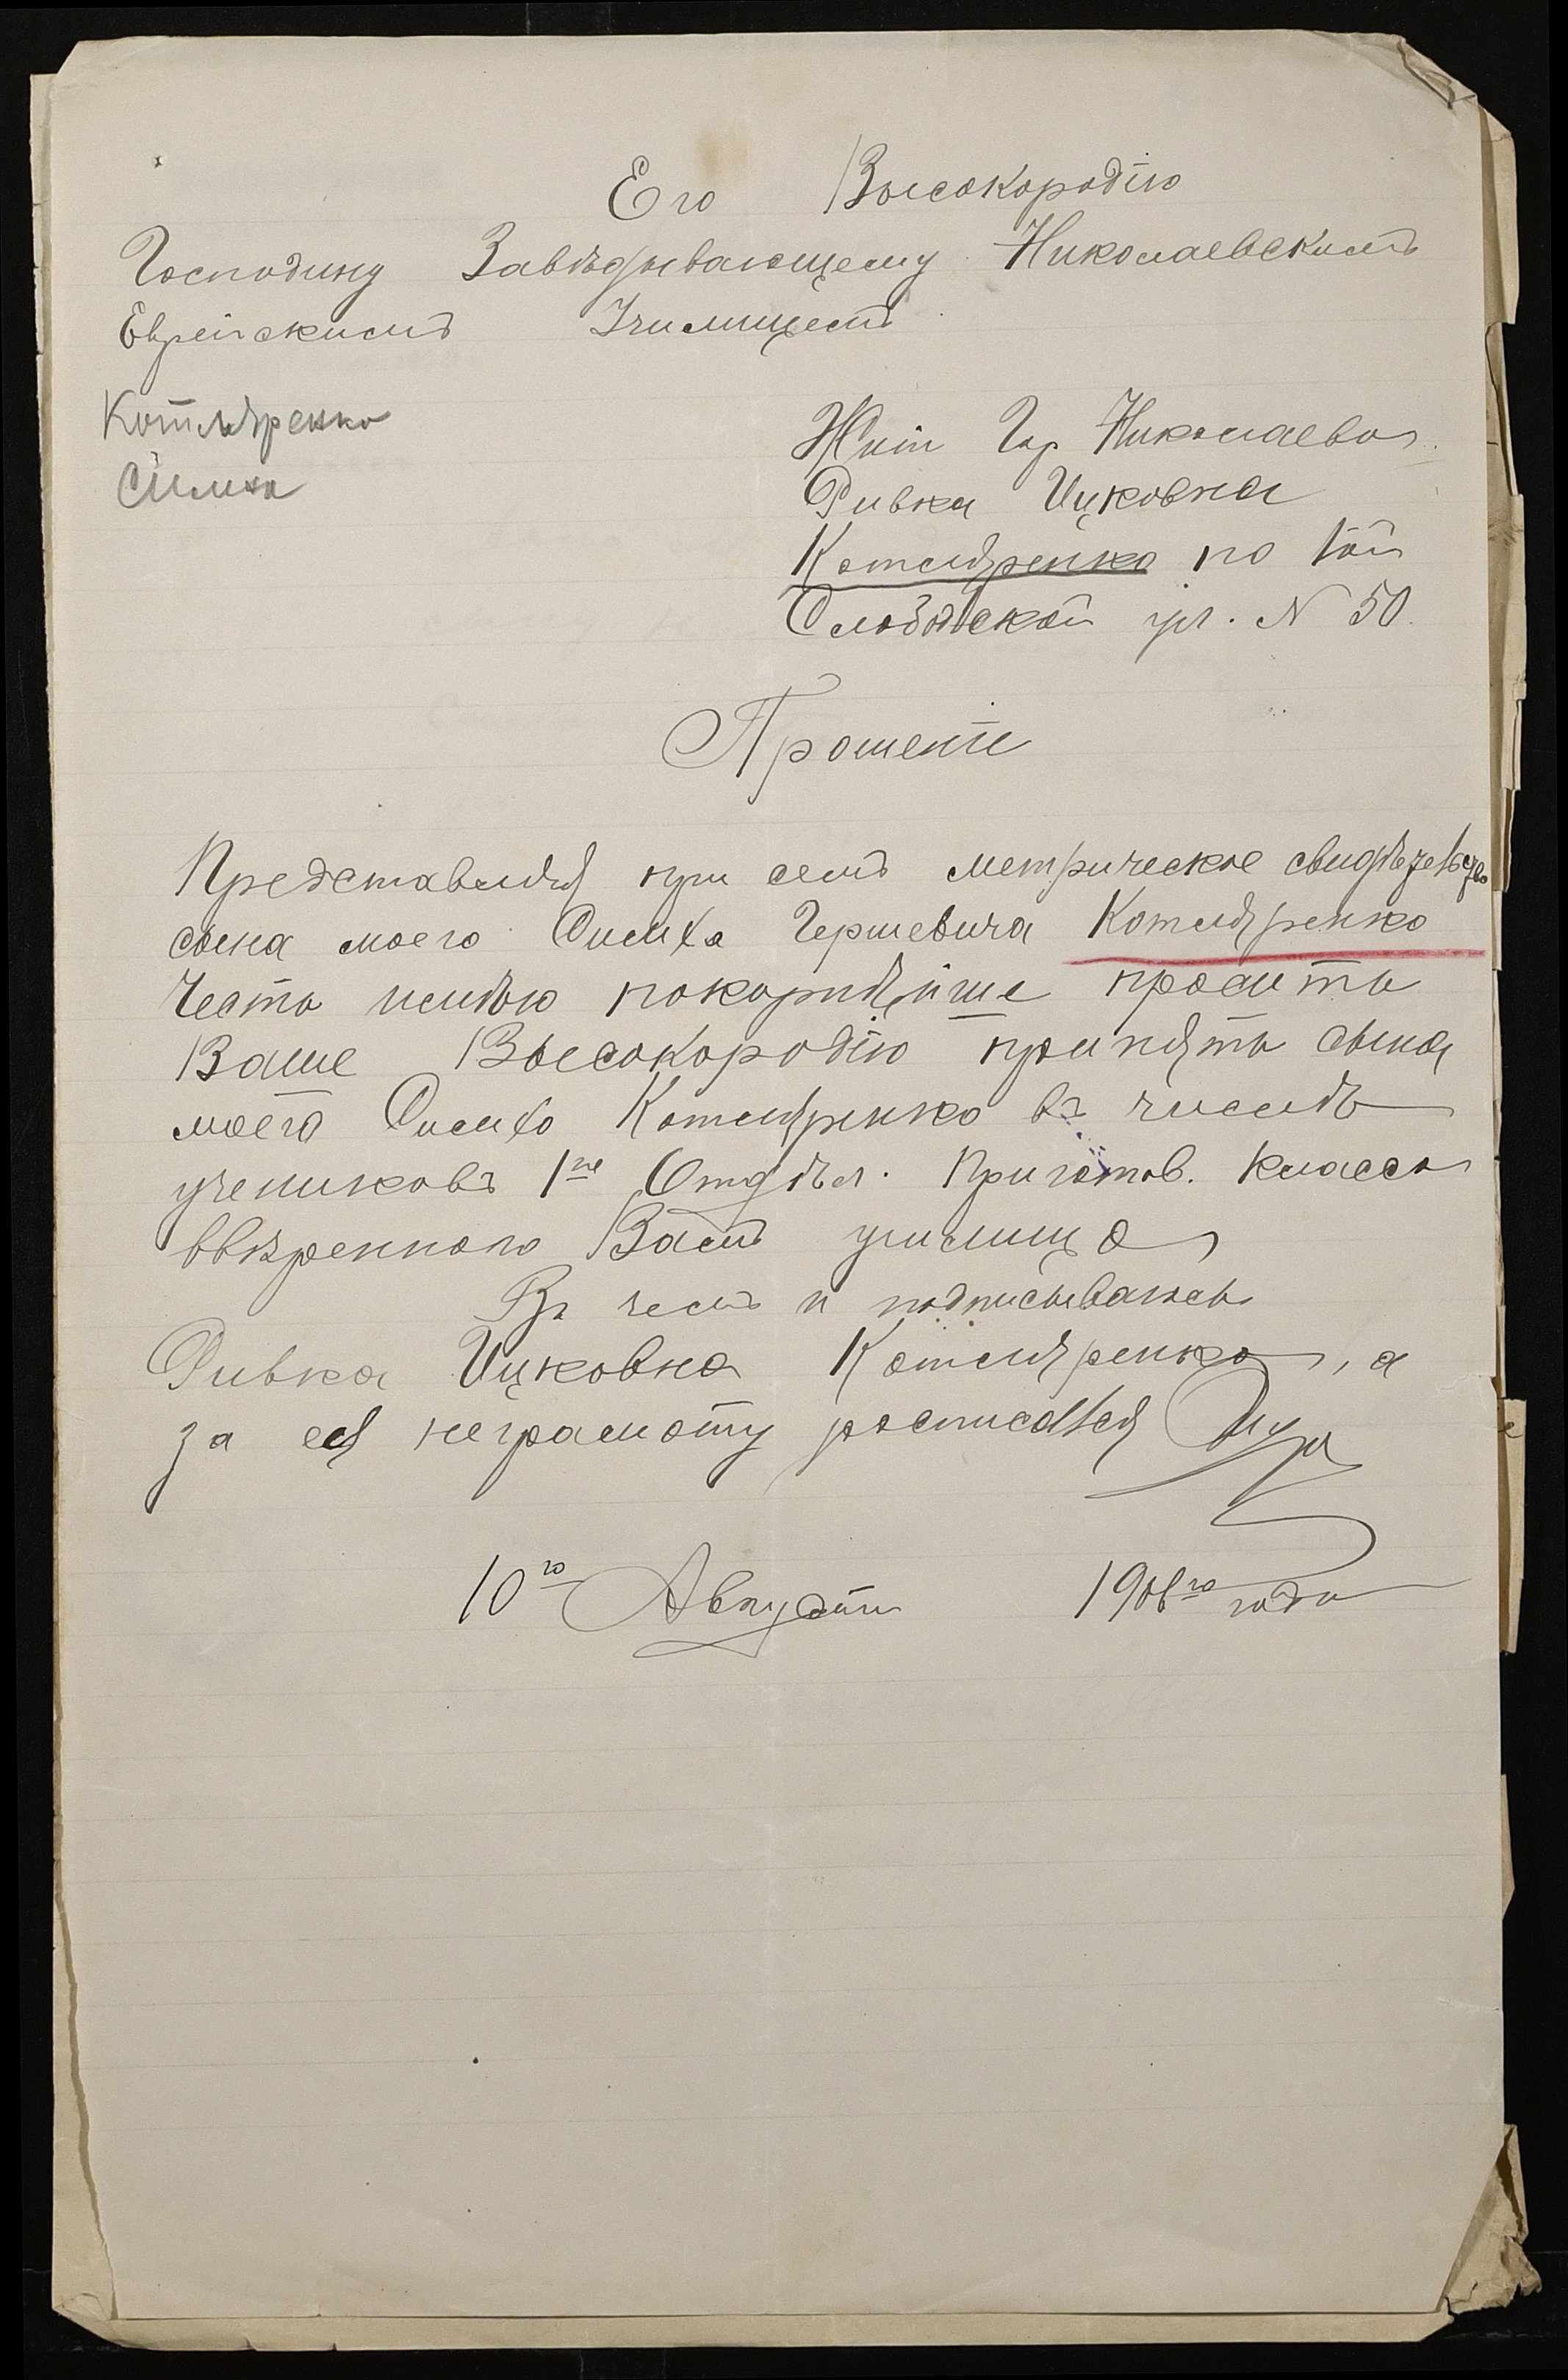 Его Высокородію
Господину Завѣдывающему Николаевскимъ
Еврейскимъ Училищемъ
Котляренко
Симха
Жит Гор Николаева
Ривка Ицковна
Котляренко по 1ой
Слободской ул. N 50.
Прошеніе
Представляя при семъ метрическое свидѣтельство
сына моего Симха Гершевича Котляренко
честь имѣю покорнѣйше просить
Ваше Высокородію принять сына
моего Симхо Котляренко въ числѣ
учениковъ 1ое Отдѣл. Приготов. Класса
ввѣренного Вамъ училища
Въ чемъ и подписываюсь
Ривка Ицковна Котляренко, а
за ея неграмоту росписался
10го Августа 1908го года